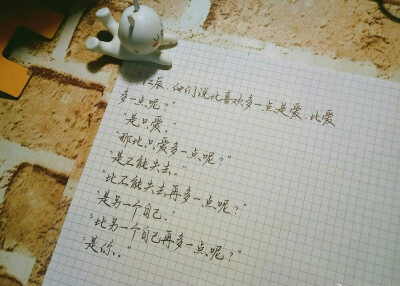 江辰,他们说比喜欢多一点是爱,比爱
多一点呢?"
"是只爱."
"那比只爱多一点呢?"
"是不能失去."
"比不能失去再多一点呢?"
"是另一个自己."
"比另一个自己再多一点呢?"
"是你."